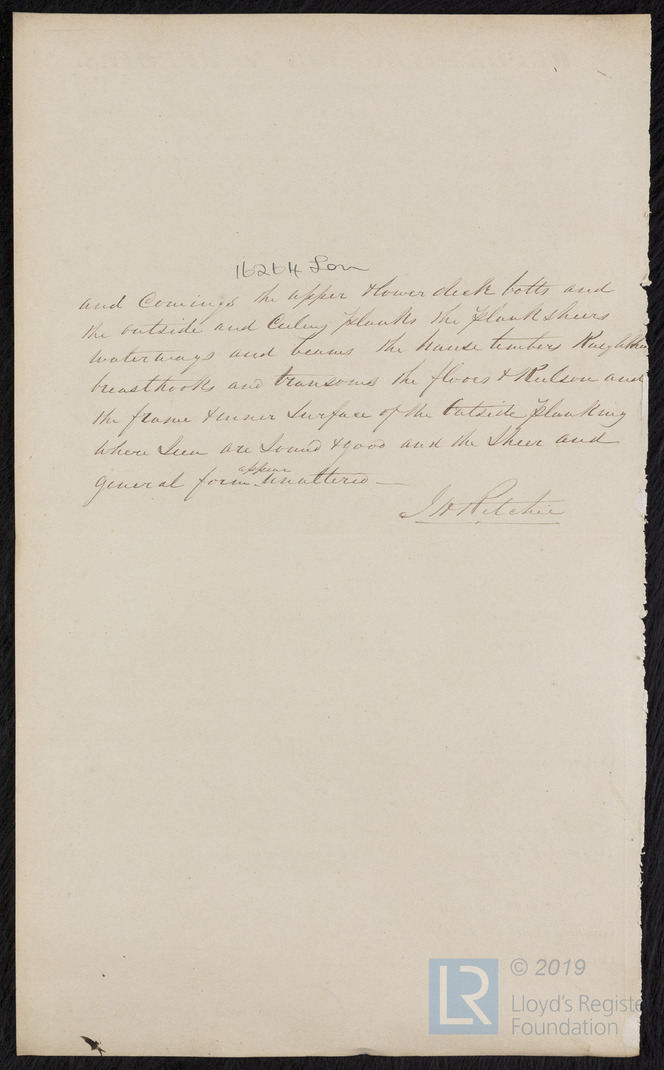 16264 Lon
and Comings the upper & lower deck bolts and
the outside and Ceiling planks the plank sheers
waterways and beams the hause timbers Knighthe
breasthooks and transoms the floors & Keelson and
the frame & inner Surface of the Outside planking
where Seen are Sound & good and the Sheer and
general form appear Unaltered —
J H Ritchie
LR © 2019
Lloyd's Registe
Foundation